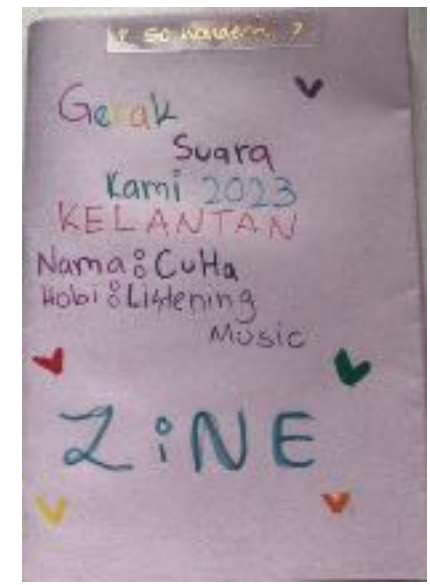 so wonderful ?
Gerak
Suara
Kami 2023
KELANTAN
Nama: CuHa
Hobi: Listening
Music
ZiNE